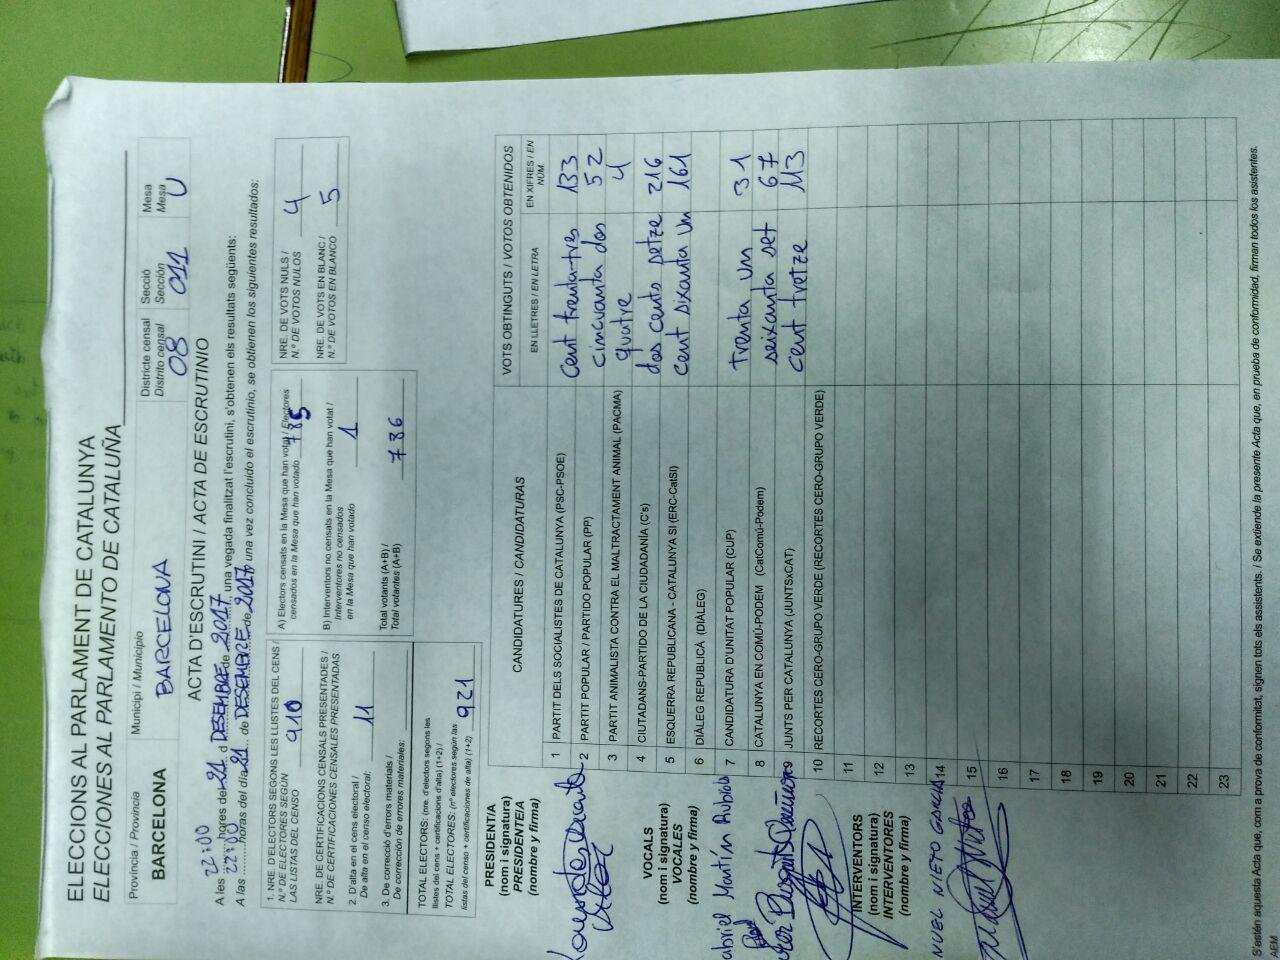 ELECCIONS AL PARLAMENT DE CATALUNYA
ELECCIONES AL PARLAMENTO DE CATALUÑA
Provincia / Provincia
BARCELONA
Municipi / Municipio
BARCELONA
Districte censal
Distrito censal
08
Secció
Sección
011
Mesa
Mesa
U
ACTA D'ESCRUTINI / ACTA DE ESCRUTINIO
A les 22:00 hores del 21 d DESEMBRE de 2017, una vegada finalitzat l'escrutini, s'obtenen els resultats següents:
A las 22:00 horas del día 21 de DESEMBRE de 2017 una vez concluido el escrutinio, se obtienen los siguientes resultados:
1. NRE. D'ELECTORS SEGONS LES LLISTES DEL CENS /
N.º DE ELECTORES SEGÚN
LAS LISTAS DEL CENSO 910
NRE. DE CERTIFICACIONS CENSALS PRESENTADES /
N.º DE CERTIFICACIONES CENSALES PRESENTADAS
2. D'alta en el cens electoral /
De alta en el censo electoral: 11
3. De correcció d'errors materials /
De corrección de errores materiales:
TOTAL ELECTORS: (nre. d'electors segons les
llistes del cens + certificacions d'alta) (1+2) /
TOTAL ELECTORES: (nº electores según las
listas del censo + certificaciones de alta) (1+2) 921
A) Electors censats en la Mesa que han votat / Electores
censados en la Mesa que han votado 785
B) Interventors no censats en la Mesa que han votat /
Interventores no censados
en la Mesa que han votado 1
Total votants (A+B) /
Total votantes (A+B) 786
NRE. DE VOTS NULS /
N.º DE VOTOS NULOS 4
NRE. DE VOTS EN BLANC /
N.º DE VOTOS EN BLANCO 5
CANDIDATURES / CANDIDATURAS
VOTS OBTINGUTS / VOTOS OBTENIDOS
EN LLETRES / EN LETRA
EN XIFRES / EN NÚM.
1 PARTIT DELS SOCIALISTES DE CATALUNYA (PSC-PSOE) cent trenta-tres 133
2 PARTIT POPULAR / PARTIDO POPULAR (PP) cincuanta dos 52
3 PARTIT ANIMALISTA CONTRA EL MALTRACTAMENT ANIMAL (PACMA) quatre 4
4 CIUTADANS-PARTIDO DE LA CIUDADANÍA (C's) dos cents setze 216
5 ESQUERRA REPUBLICANA - CATALUNYA SI (ERC-CatSI) cent sixanta un 161
6 DIÀLEG REPUBLICÀ (DIÀLEG)
7 CANDIDATURA D'UNITAT POPULAR (CUP) trenta un 31
8 CATALUNYA EN COMÚ-PODEM (CatComú-Podem) seixanta set 67
9 JUNTS PER CATALUNYA (JUNTSxCAT) cent tretze 113
10 RECORTES CERO-GRUPO VERDE (RECORTES CERO-GRUPO VERDE)
11
12
13
14
15
16
17
18
19
20
21
22
23
PRESIDENT/A
(nom i signatura)
PRESIDENTE/A
(nombre y firma)
VOCALS
(nom i signatura)
VOCALES
(nombre y firma)
abriel Martín Rubio
INTERVENTORS
(nom i signatura)
INTERVENTORES
(nombre y firma)
NUEL NIETO GARCIA
S'estén aquesta Acta que, com a prova de conformitat, signen tots els assistents. / Se extiende la presente Acta que, en prueba de conformidad, firman todos los asistentes.
AEM